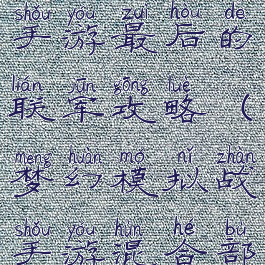 shǒu yóu zuì hòu de
手游最后的
lián jūn gōng lüè
联军攻略（
mèng huàn mó nǐ zhàn
梦幻模拟战
shǒu yóu hùn hé bù
手游混合部